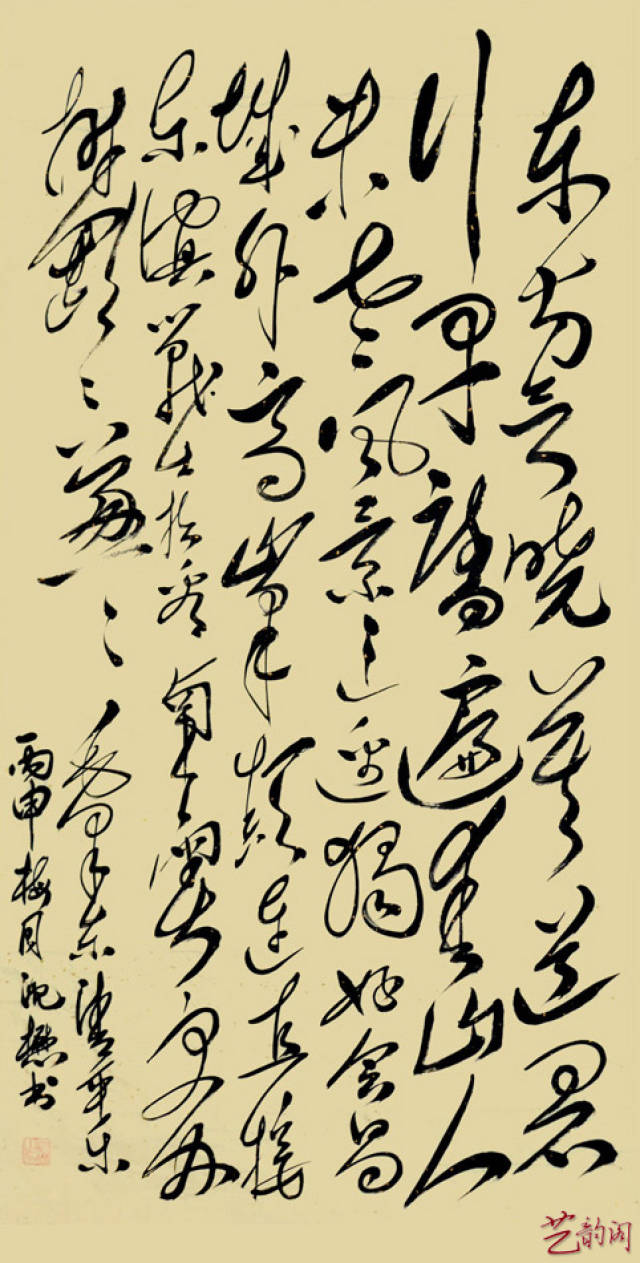 东方欲晓莫道君
行早踏遍青山人
未老风景这边独好会昌
城外高峰颠连直接
东溟戰士指看南粤更加
鬱〻葱〻毛泽东清平乐
丙申梅月沈懋书
艺韵阁